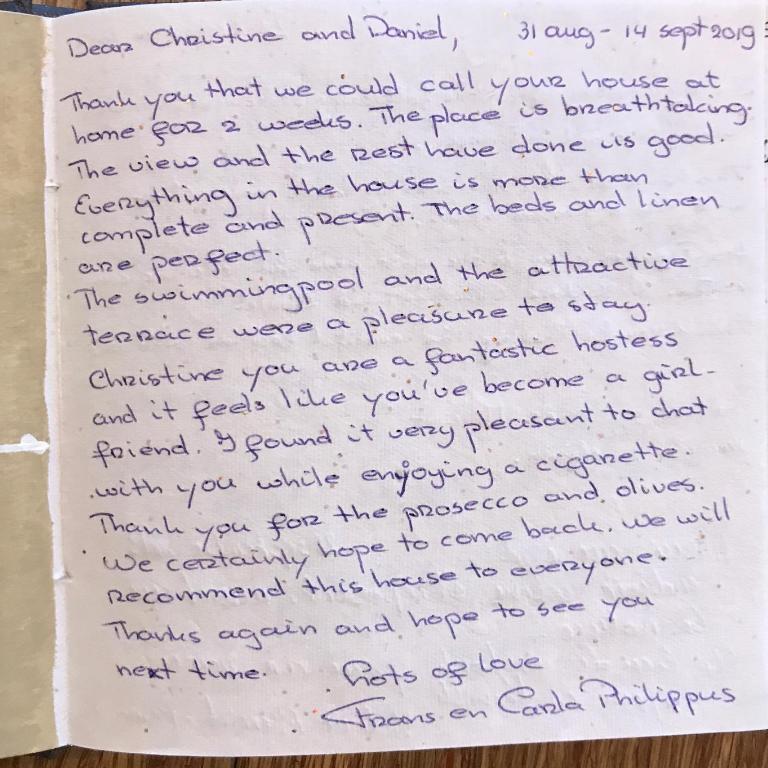 Dear Christine and Daniel, 31 aug - 14 sept 2019
Thank you that we could call your house at
home for 2 weeks. The place is breathtaking.
The view and the rest have done us good.
Everything in the house is more than
complete and present. The beds and linen
are perfect.
The swimmingpool and the attractive
terrace were a pleasure to stay.
Christine you are a fantastic hostess
and it feels like you've become a girl-
friend. I found it very pleasant to chat
with you while enjoying a cigarette.
Thank you for the prosecco and olives.
We certainly hope to come back. We will
recommend this house to everyone.
Thanks again and hope to see you
next time. Lots of love
Frans en Carla Philippus